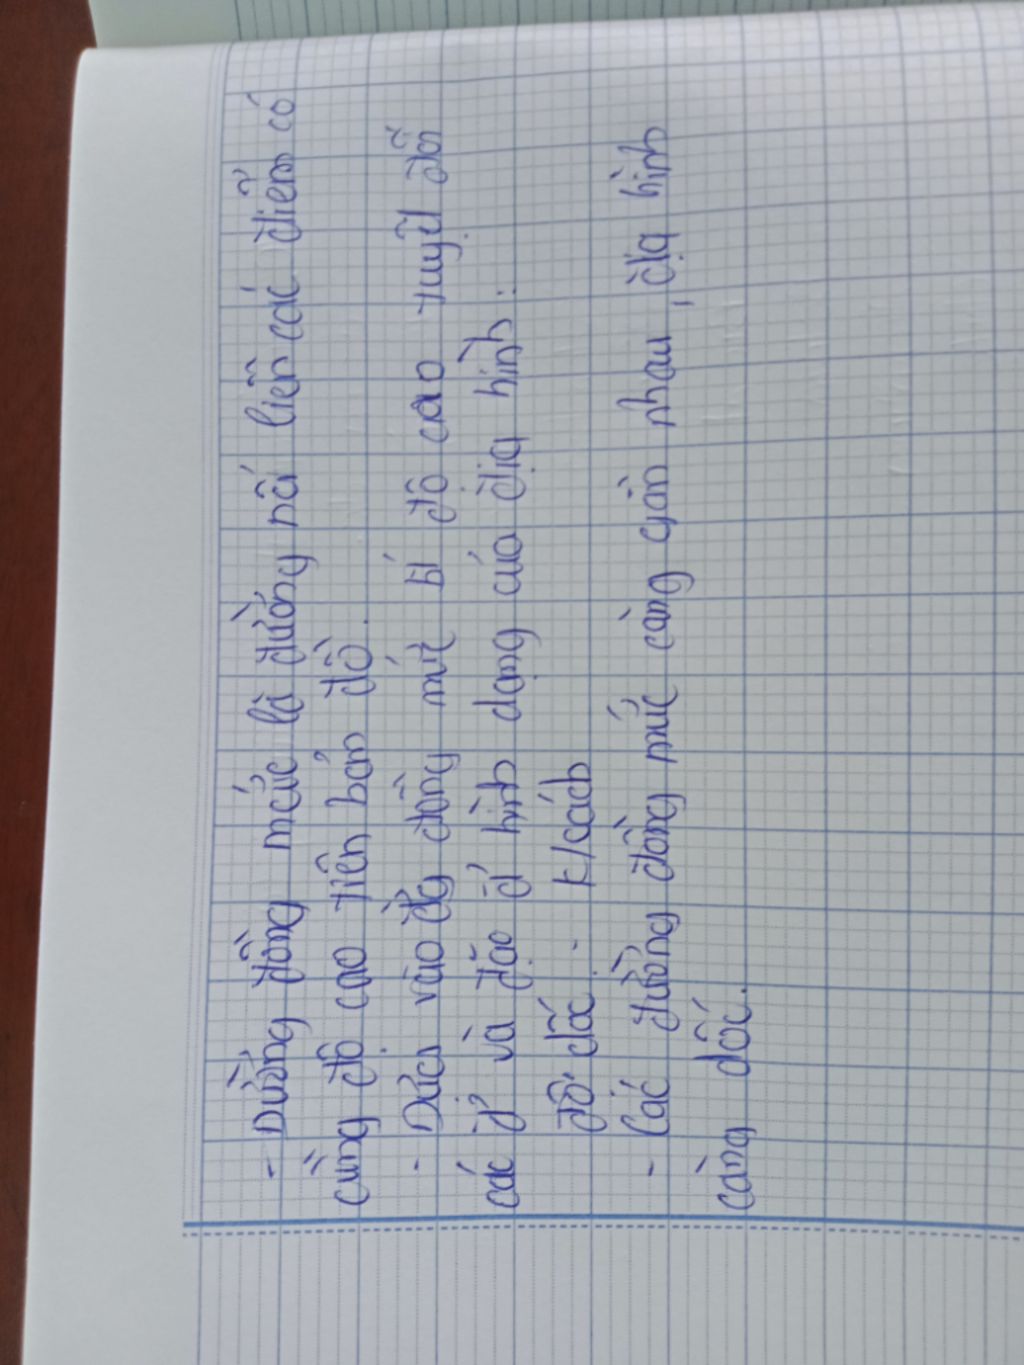 - Đường đồng mức là đường nối liền các điểm có
cùng độ cao trên bản đồ.
- Dựa vào đg đồng mức bí độ cao tuyệt đối
các và đặc hình dạng của địa hình:
độ dốc. - k/cách
- Các đường đồng mức càng gần nhau, địa hình
càng dốc.